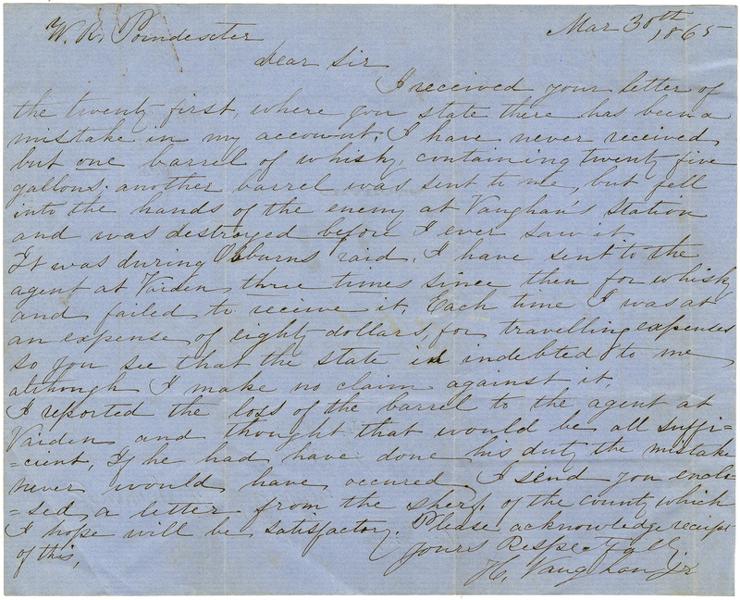 Mar 30th 1865
W. R. Poindexter
dear Sir
I received your letter of
the twenty first, where you state there has been a
mistake in my account. I have never received
but one barrel of whisky, containing twenty five
gallons. another barrel was sent to me, but fell
into the hands of the enemy at Vaughan's Station
and was destroyed before I ever saw it
It was during Osburns raid. I have sent to the
agent at Vaiden three times since then for whisky
and failed to receive it. Each time I was at
an expense of eighty dollars for travelling expenses
so you see that the state is indebted to me
although I make no claim against it.
I reported the loss of the barrel to the agent at
Vaiden and thought that would be all suffi=
=cient, If he had have done his duty the mistake
never would have occured. I send you enclo=
=sed a letter from the sherf. of the county which
I hope will be satisfactory. Please acknowledge receipt
of this,
Yours Respectfully
H. Vaughan Jr